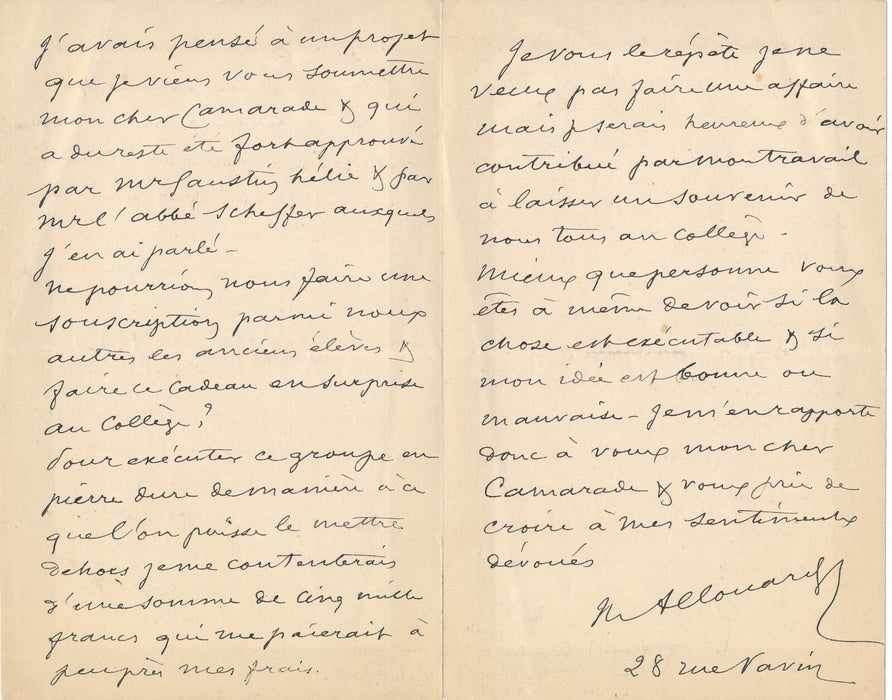 J'avais pensé à un projet
que je viens vous soumettre
mon cher Camarade & qui
a du reste été fort approuvé
par Mr Faustin hélie & par
Mr l'abbé Scheffer auxquels
j'en ai parlé -
ne pourrions nous faire une
souscription parmi nous
autres les anciens élèves &
faire ce cadeau en surprise
au Collège?
Pour exécuter ce groupe en
pierre dure de manière à ce
que l'on puisse le mettre
dehors je me contenterais
d'une somme de cinq mille
francs qui me paierait à
peu près mes frais.
Je vous le répète je ne
veux pas faire une affaire
mais je serais heureux d'avoir
contribué par mon travail
à laisser un souvenir de
nous tous au collège -
Mieux que personne vous
êtes à même de voir si la
chose est exécutable & si
mon idée est bonne ou
mauvaise - Je m'en rapporte
donc à vous mon cher
Camarade & vous prie de
croire à mes sentiments
dévoués
H Allouard
28 rue Vavin